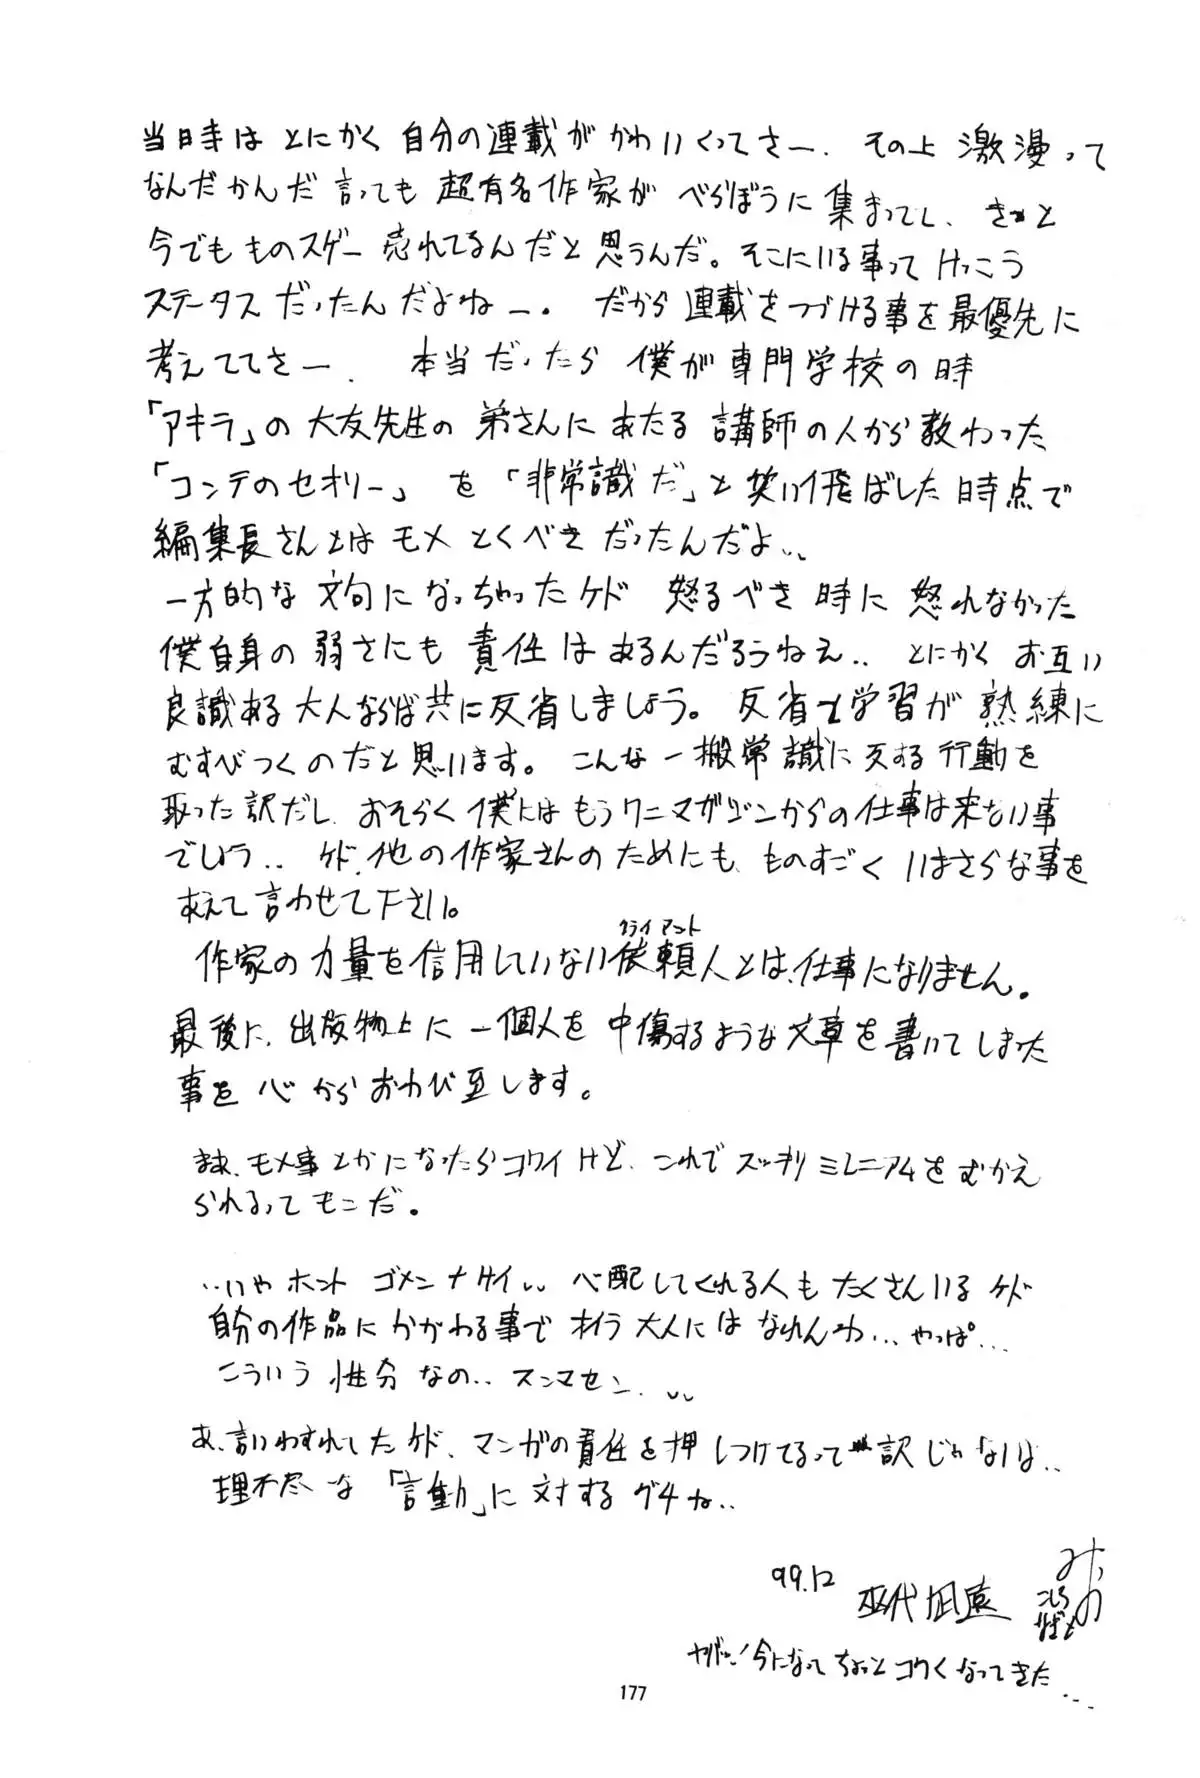 当時は とにかく 自分の連載が かわいくってさー. その上 激漫って
なんだかんだ 言っても 超有名作家が べらぼうに 集まってし、きっと
今でも ものスゲー 売れてるんだと 思うんだ。そこにいる事って けっこう
ステータス だったんだよねー. だから 連載をつづける事を最優先に
考えててさー. 本当だったら 僕が専門学校の時
「アキラ」の 大友先生の 弟さんに あたる 講師の人から 教わった
「コンテのセオリー」 を 「非常識だ」と 笑い飛ばした時点で
編集長さんとは モメ とくべき だったんだよ..
一方的な 文句に なっちゃったケド 怒るべき 時に 怒れなかった
僕自身の 弱さにも 責任は あるんだろうねぇ.. とにかく お互い
良識ある 大人ならば 共に反省しましょう。 反省と学習が 熟練に
むすびつくのだと 思います。 こんな 一搬常識に反する 行動を
取った訳だし、おそらく 僕には もうワニマガジンからの仕事は来ない事
でしょう.. ケド、他の作家さんのためにも、ものすごく いまさらな事を
敢えて言わせて下さい。
作家の力量を信用していない依頼人とは、仕事になりません。
クライアント
最後に、出版物上に 一個人を 中傷するような文章を書いてしまった
事を 心から おわび 致します。
まあ、モメ事とかになったらコワイけど、これで スッキリ ミレニアムを むかえ
られるってもンだ。
..いや ホント ゴメンナサイ.. 心配してくれる人も たくさんいる ケド
自分の作品に かかわる事で オイラ 大人には なれんわ... やっぱ...
こういう 性分 なの.. スンマセン...
あ、言いわすれてたケド、マンガの責任を押しつけてるって 訳じゃないよ..
理不尽な 「言動」に 対する グチね..
99.12
巫代凪遠
みのり
ヤバッ! 今になって ちょっと コワくなってきた...
177